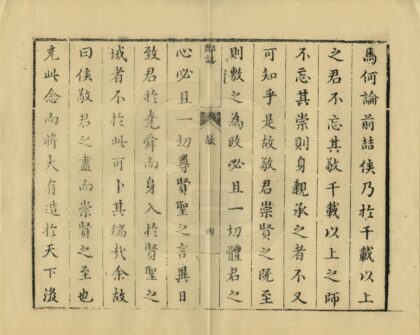 焉何論前喆侯乃於千載以上
之君不忘其敬千載以上之師
不忘其崇則身親承之者不又
可知乎是故敬君崇賢之旣至
則敷之為政必且一切體君之
四
心必且一切尊賢聖之言異日
致君於堯舜而身入於賢聖之
域者不於此可卜其端哉余故
曰侯敬君之盡而崇賢之至也
充此念而將大有造於天下後